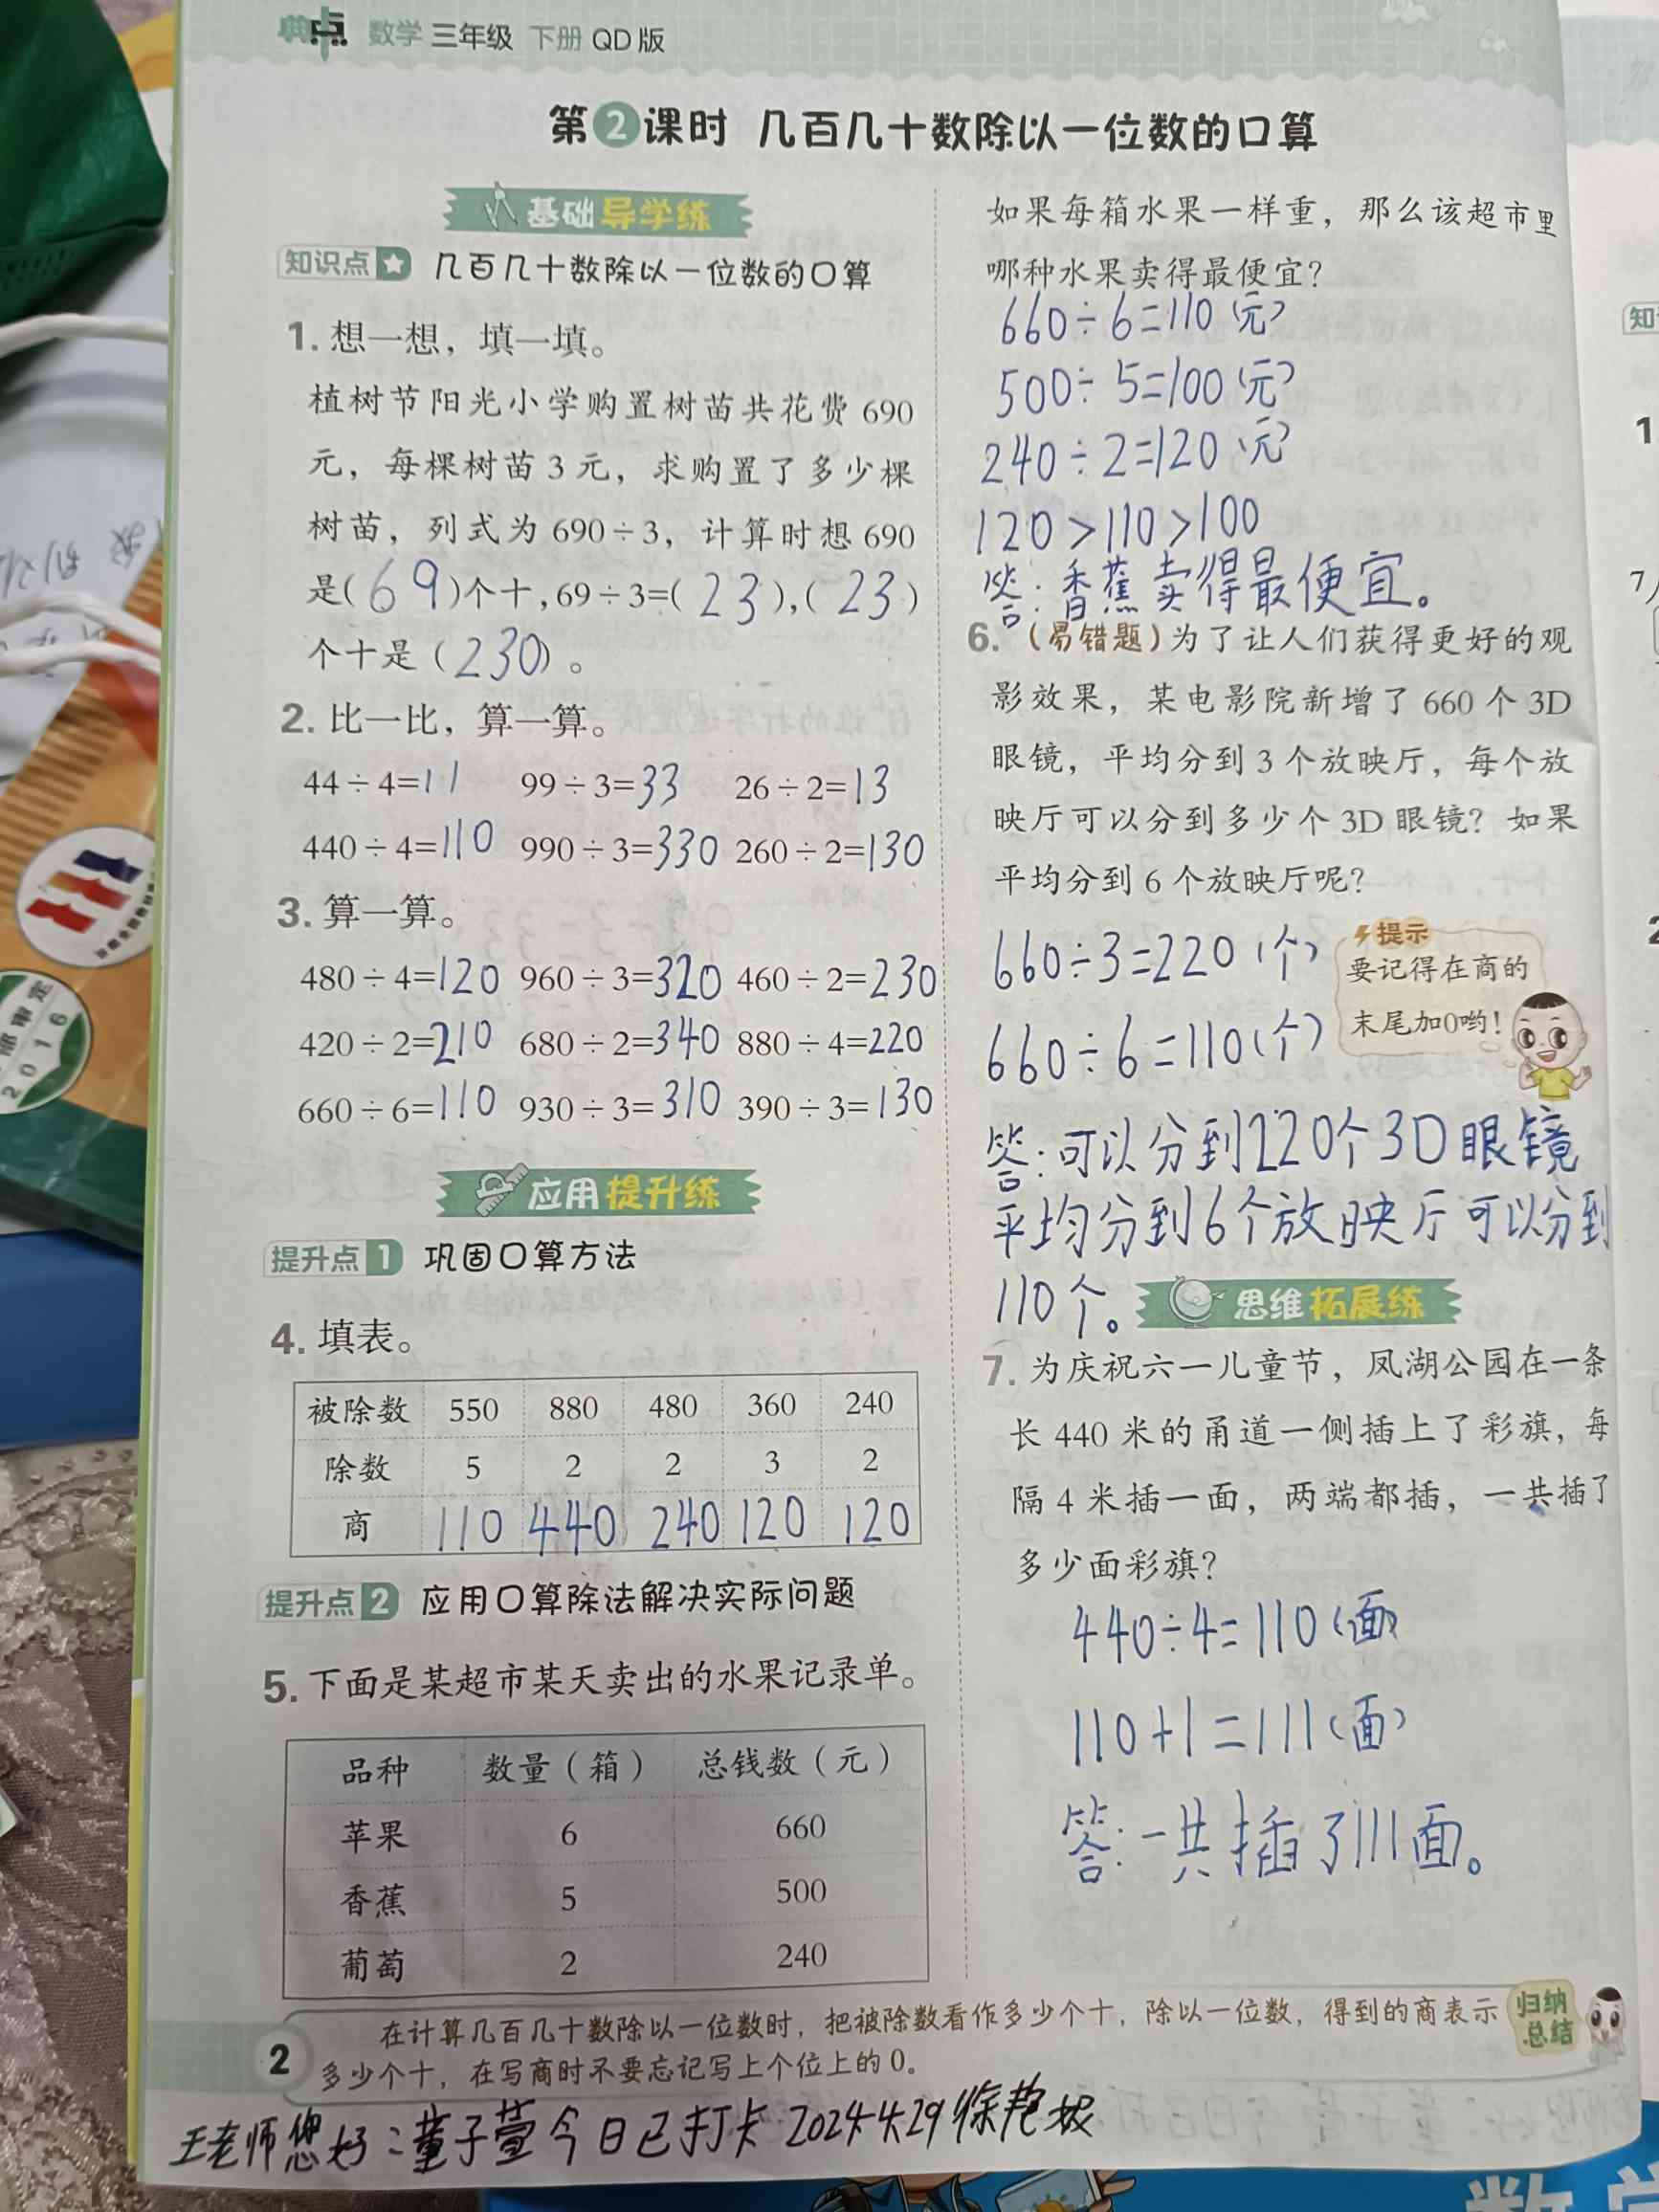 典点 数学 三年级 下册 QD版
第2课时 几百几十数除以一位数的口算
基础导学练
知识点 几百几十数除以一位数的口算
1. 想一想，填一填。
植树节阳光小学购置树苗共花费690
元，每棵树苗3元，求购置了多少棵
树苗，列式为690÷3，计算时想690
是(69)个十,69÷3=(23),(23)
个十是(230)。
2. 比一比，算一算。
44÷4=11 99÷3=33 26÷2=13
440÷4=110 990÷3=330 260÷2=130
3. 算一算。
480÷4=120 960÷3=320 460÷2=230
420÷2=210 680÷2=340 880÷4=220
660÷6=110 930÷3=310 390÷3=130
应用提升练
提升点1 巩固口算方法
4. 填表。
被除数 550 880 480 360 240
除数 5 2 2 3 2
商 110 440 240 120 120
提升点2 应用口算除法解决实际问题
5. 下面是某超市某天卖出的水果记录单。
品种 数量（箱） 总钱数（元）
苹果 6 660
香蕉 5 500
葡萄 2 240
如果每箱水果一样重，那么该超市里
哪种水果卖得最便宜？
660÷6=110(元)
500÷5=100(元)
240÷2=120(元)
120>110>100
答:香蕉卖得最便宜。
6.（易错题）为了让人们获得更好的观
影效果，某电影院新增了660个3D
眼镜，平均分到3个放映厅，每个放
映厅可以分到多少个3D眼镜？如果
平均分到6个放映厅呢？
660÷3=220(个)
提示
要记得在商的
末尾加0哟！
660÷6=110(个)
答:可以分到220个3D眼镜
平均分到6个放映厅可以分到
110个。
思维拓展练
7. 为庆祝六一儿童节，凤湖公园在一条
长440米的甬道一侧插上了彩旗，每
隔4米插一面，两端都插，一共插了
多少面彩旗？
440÷4=110(面)
110+1=111(面)
答:一共插了111面。
在计算几百几十数除以一位数时，把被除数看作多少个十，除以一位数，得到的商表示
多少个十，在写商时不要忘记写上个位上的0。
归纳
总结
2
王老师您好:董子萱今日已打卡 2024.4.29
2016
数学